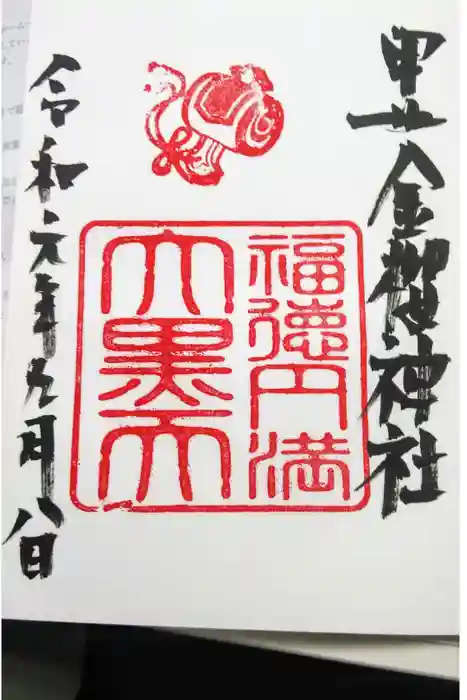 金櫻神社
福徳円満
大黒天
令和元年九月八日